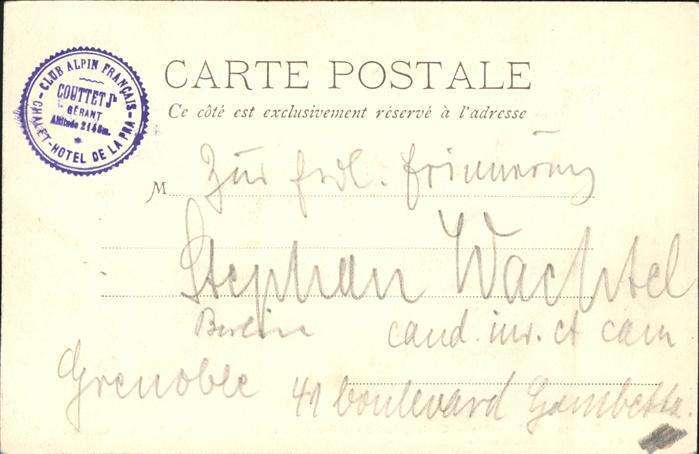 CLUB ALPIN FRANÇAIS
COUTTET Jh
GÉRANT
Altitude 2145m.
CHALET-HOTEL DE LA PRA
CARTE POSTALE
Ce côté est exclusivement réservé à l'adresse
M Zur frdl. Erinnerung
Stephan Wachtel
Berlin cand. iur. et cam
Grenoble 41 boulevard Gambetta.